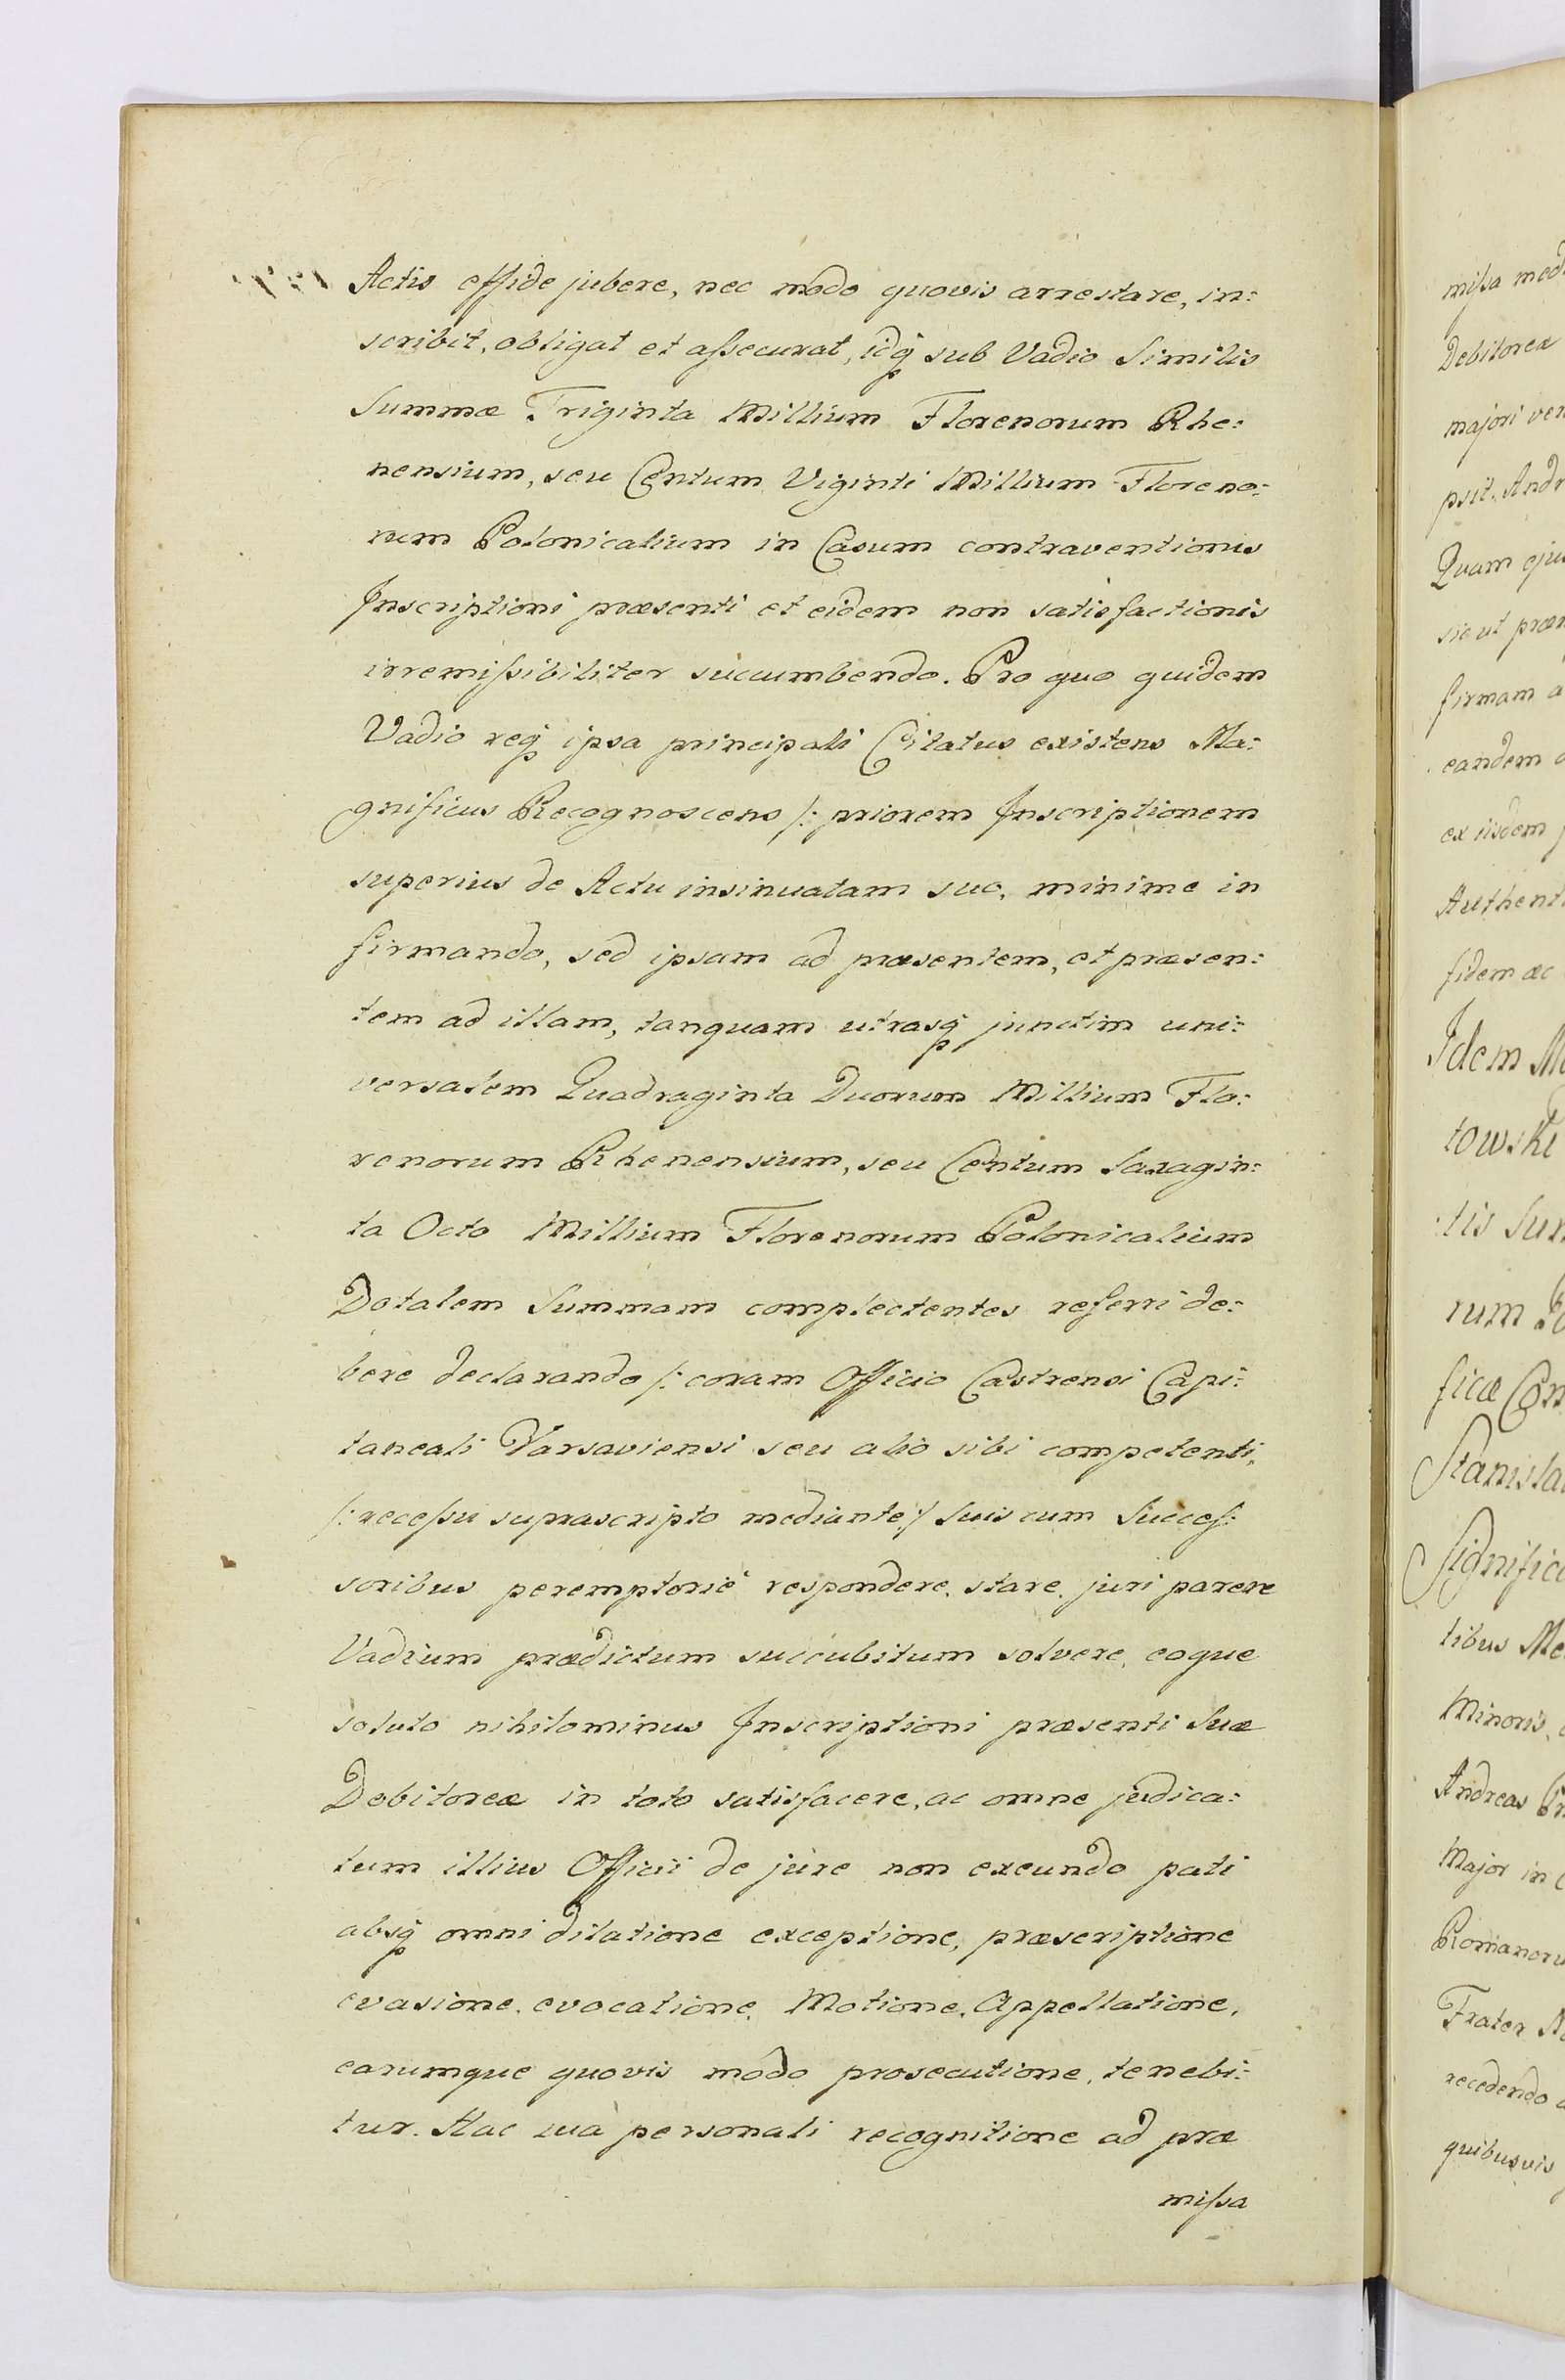 Actis effide jubere, nec modo quovis arrestare, in:
scribit, obligat et assecurat, idq sub Vadio Similis
Summæ Triginta Millium Florenorum Rhe:
nensium, seu Centum Viginti Millium Floreno:
rum Polonicalium in Casum contraventionis
Inscriptioni præsenti et eidem non satisfactionis
irremissibiliter succumbendo. Pro quo quidem
Vadio req ipsa principali Citatus existens Ma:
gnificus Recognoscens /: priorem Inscriptionem
superius de Actu insinuatam suo, minime in
firmando, sed ipsam ad præsentem, et præsen:
tem ad illam, tanquam utrasq junctim uni:
versalem Quadraginta Duorum Millium Flo:
renorum Rhenensium, seu Centum Saxagin:
ta Octo Millium Florenorum Polonicalium
Dotalem Summam complectentes referri de:
bere declarando /: coram Officio Castrensi Capi:
taneali Varsaviensi seu alio sibi competenti,
/: recessu suprascripto mediante :/ Suis cum Succes:
soribus peremptorie respondere, stare, juri parere
Vadium prædictum succubitum solvere, eoque
soluto nihilominus Inscriptioni præsenti Suæ
Debitoreæ in toto satisfacere, ac omne judica:
tum illius Officii de jure non exeundo pati
absq omni dilatione exceptione, præscriptione
evasione, evocatione, Motione, Appellatione,
earumque quovis modo prosecutione, tenebi:
tur. Hac sua personali recognitione ad præ
missa
missa med
Debitoreæ
majori ver
psit. And
Quam eju
sic ut præ
firmam a
eandem
ex iisdem
Authent
fidem ac
Idem M
towski
tis Su
rum Po
ficæ Con
Stanisla
Significa
tibus Me
Minoris,
Andreas
Major in
Romanoru
Frater
recedendo
quibusvis